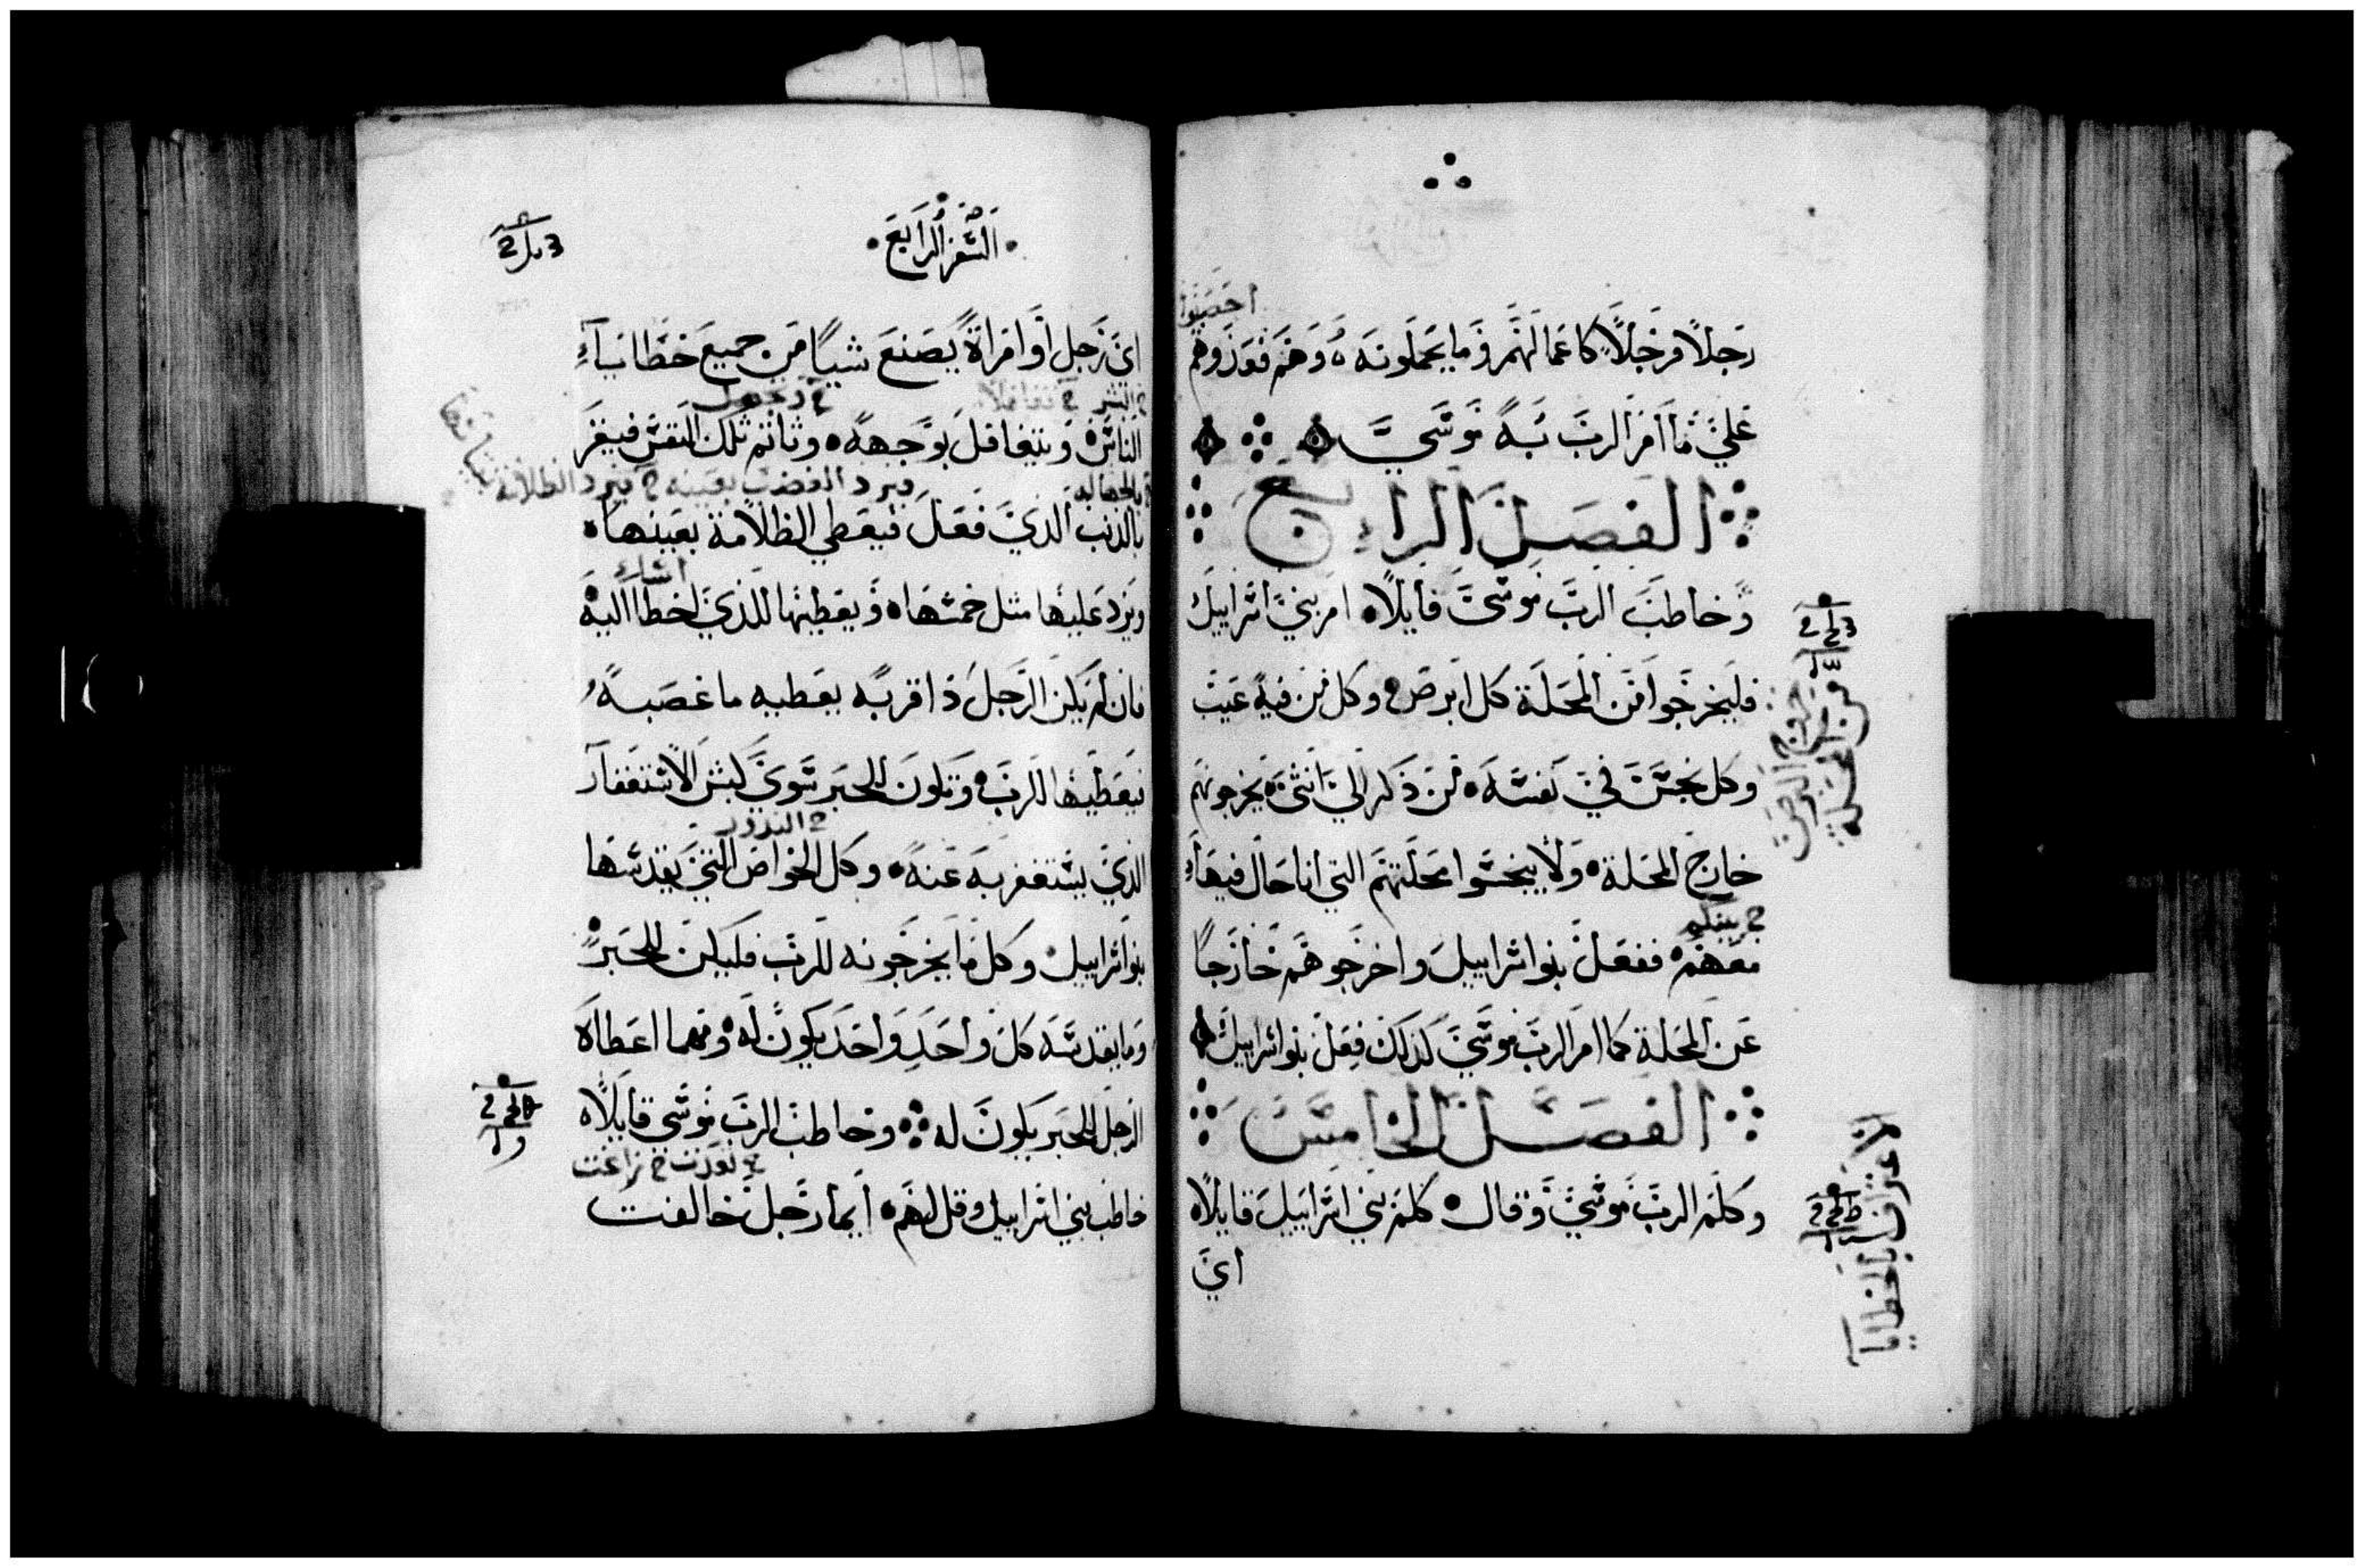 احصوا
رجلاً فرجلاً كاعمالهم وما يحملونه وهم فوزوهم
علي ما امر الرب به موسي
الفصل الرابع
وخاطب الرب موسي قايلاً امر بني اسراييل
فليخرجوا من المحلة كل ابرص وكل من فيه عيب
وكل نجس في نفسه من ذكر الي انثي يخرجونهم
خارج المحلة ولا ينجسوا محلتهم التي انا حال فيها
ح بينكم
معهم ففعل بنو اسراييل واخرجوهم خارجاً
عن المحلة كما امر الرب موسي كذلك فعل بنو اسراييل
الفصل الخامس
وكلم الرب موسي وقال كلم بني اسراييل قايلاً
اي
خروج البرص
من المحلة
الاعتراف بالخطايا
السفر الرابع
اي رجل او امراة يصنع شياً من جميع خطايا
ح البشر ح تغافلاً
الناس ويتغافل بوجهه وتاثم تلك النفس فيقر
بالذنب الذي فعل فيعطي الظلامة بعينها
ويزد عليها مثل خمسها ويعطيها للذي اخطا اليه
فان لم يكن الرجل ذا قربه يعطيه ما غصبه
فيعطيها للرب وتكون للحبر سوي كبش الاستغفار
ح النذور
الذي يستغفر به عنه وكل الخواص التي يقدسها
بنو اسراييل وكل ما يخرجونه للرب فليكن للحبر
وما يقدسه كل واحد واحد يكون له ومهما اعطاه
الرجل للحبر يكون له وخاطب الرب موسي قايلاً
خاطب بني اسراييل وقل لهم ايما رجل خالفت